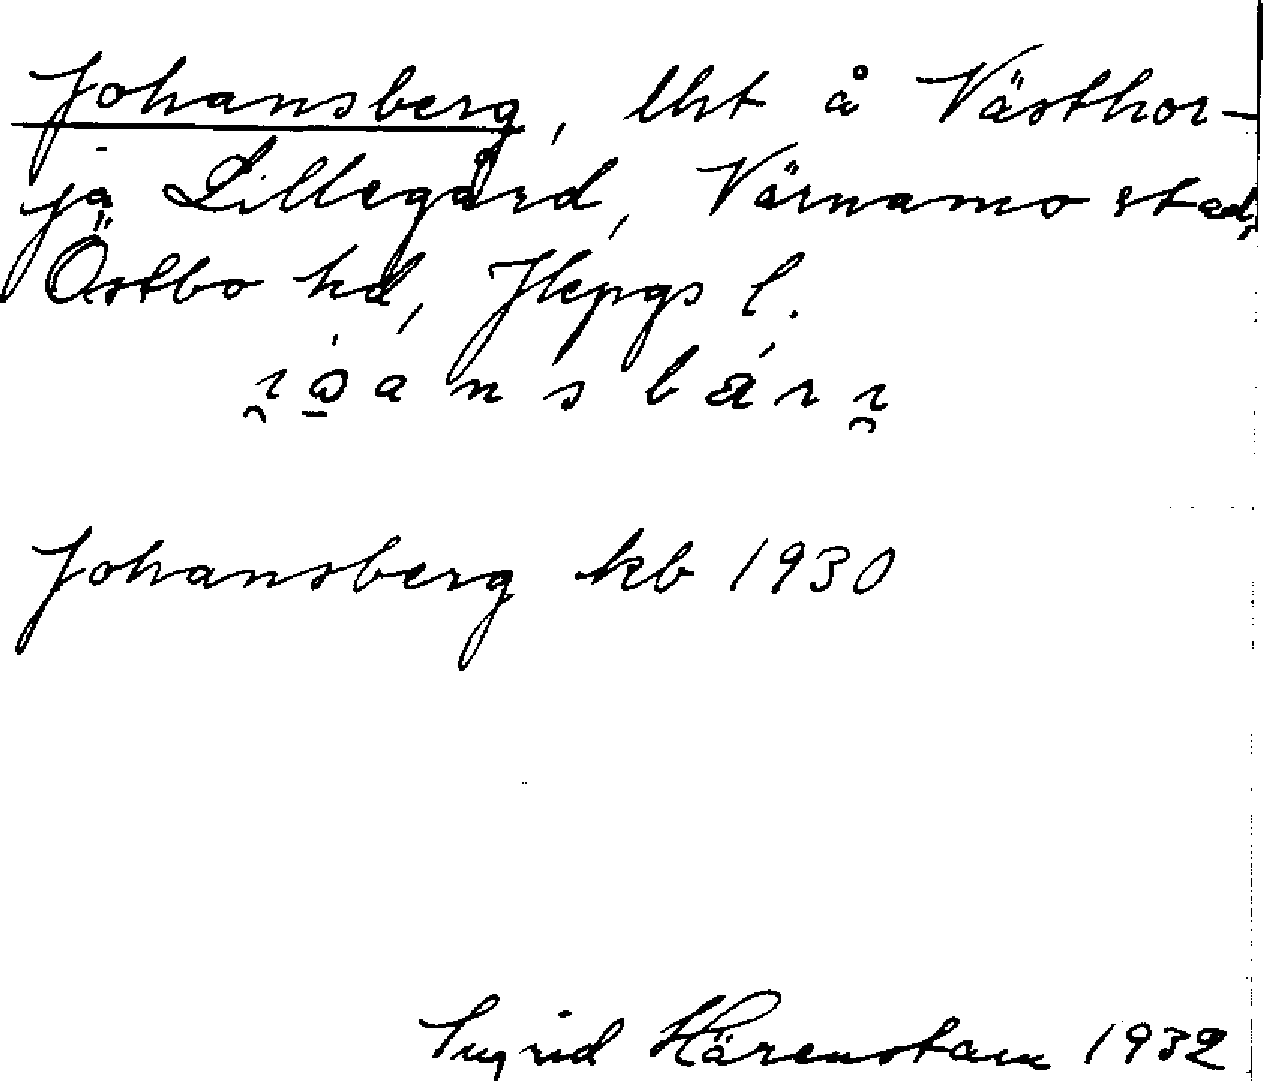 Johansberg, lht å Västhor-
ja Lillegård, Värnamo stad,
Östbo hd, Jkpgs l.
Johansberg kb 1930
Ingrid Härenstam 1932